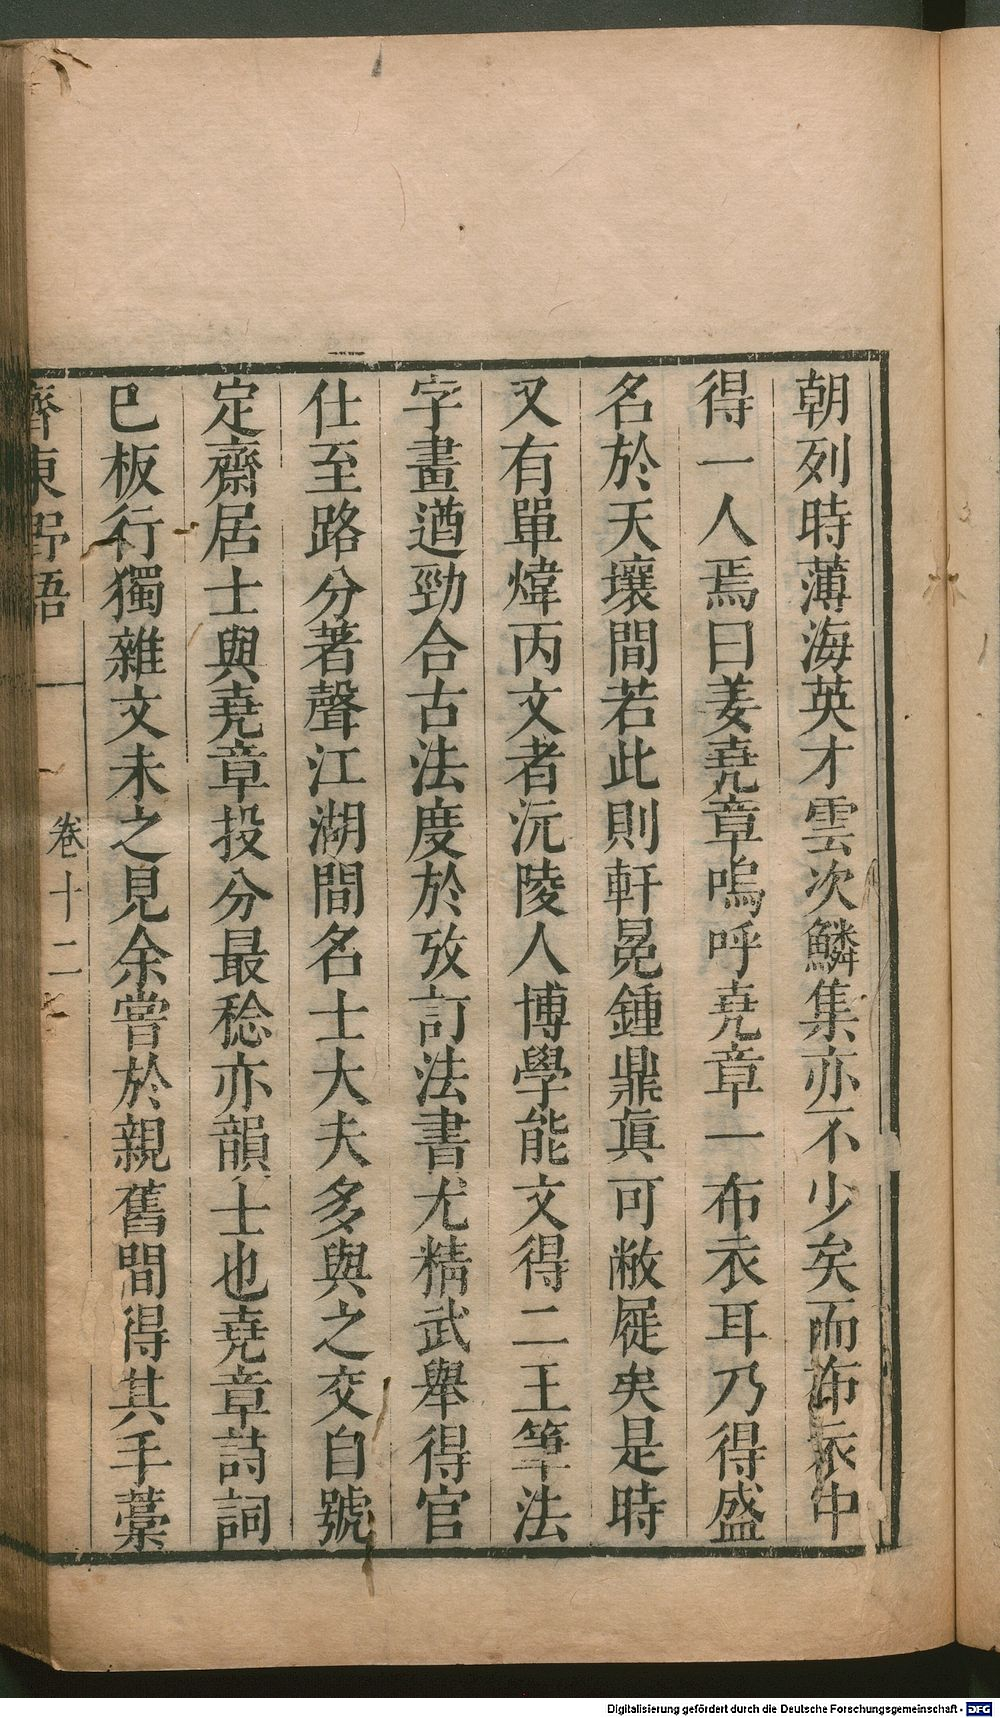 朝列時薄海英才雲次鱗集亦不少矣而布衣中
得一人焉曰姜堯章嗚呼堯章一布衣耳乃得盛
名於天壤間若此則軒冕鍾鼎眞可敝屣矣是時
又有單煒丙文者沅陵人博學能文得二王筆法
字畫遒勁合古法度於攷訂法書尤精武舉得官
仕至路分著聲江湖間名士大夫多與之交自號
定齋居士與堯章投分最稔亦韻士也堯章詩詞
已板行獨雜文未之見余嘗於親舊間得其手藁
齊東野語 卷十二
Digitalisierung gefördert durch die Deutsche Forschungsgemeinschaft - DFG